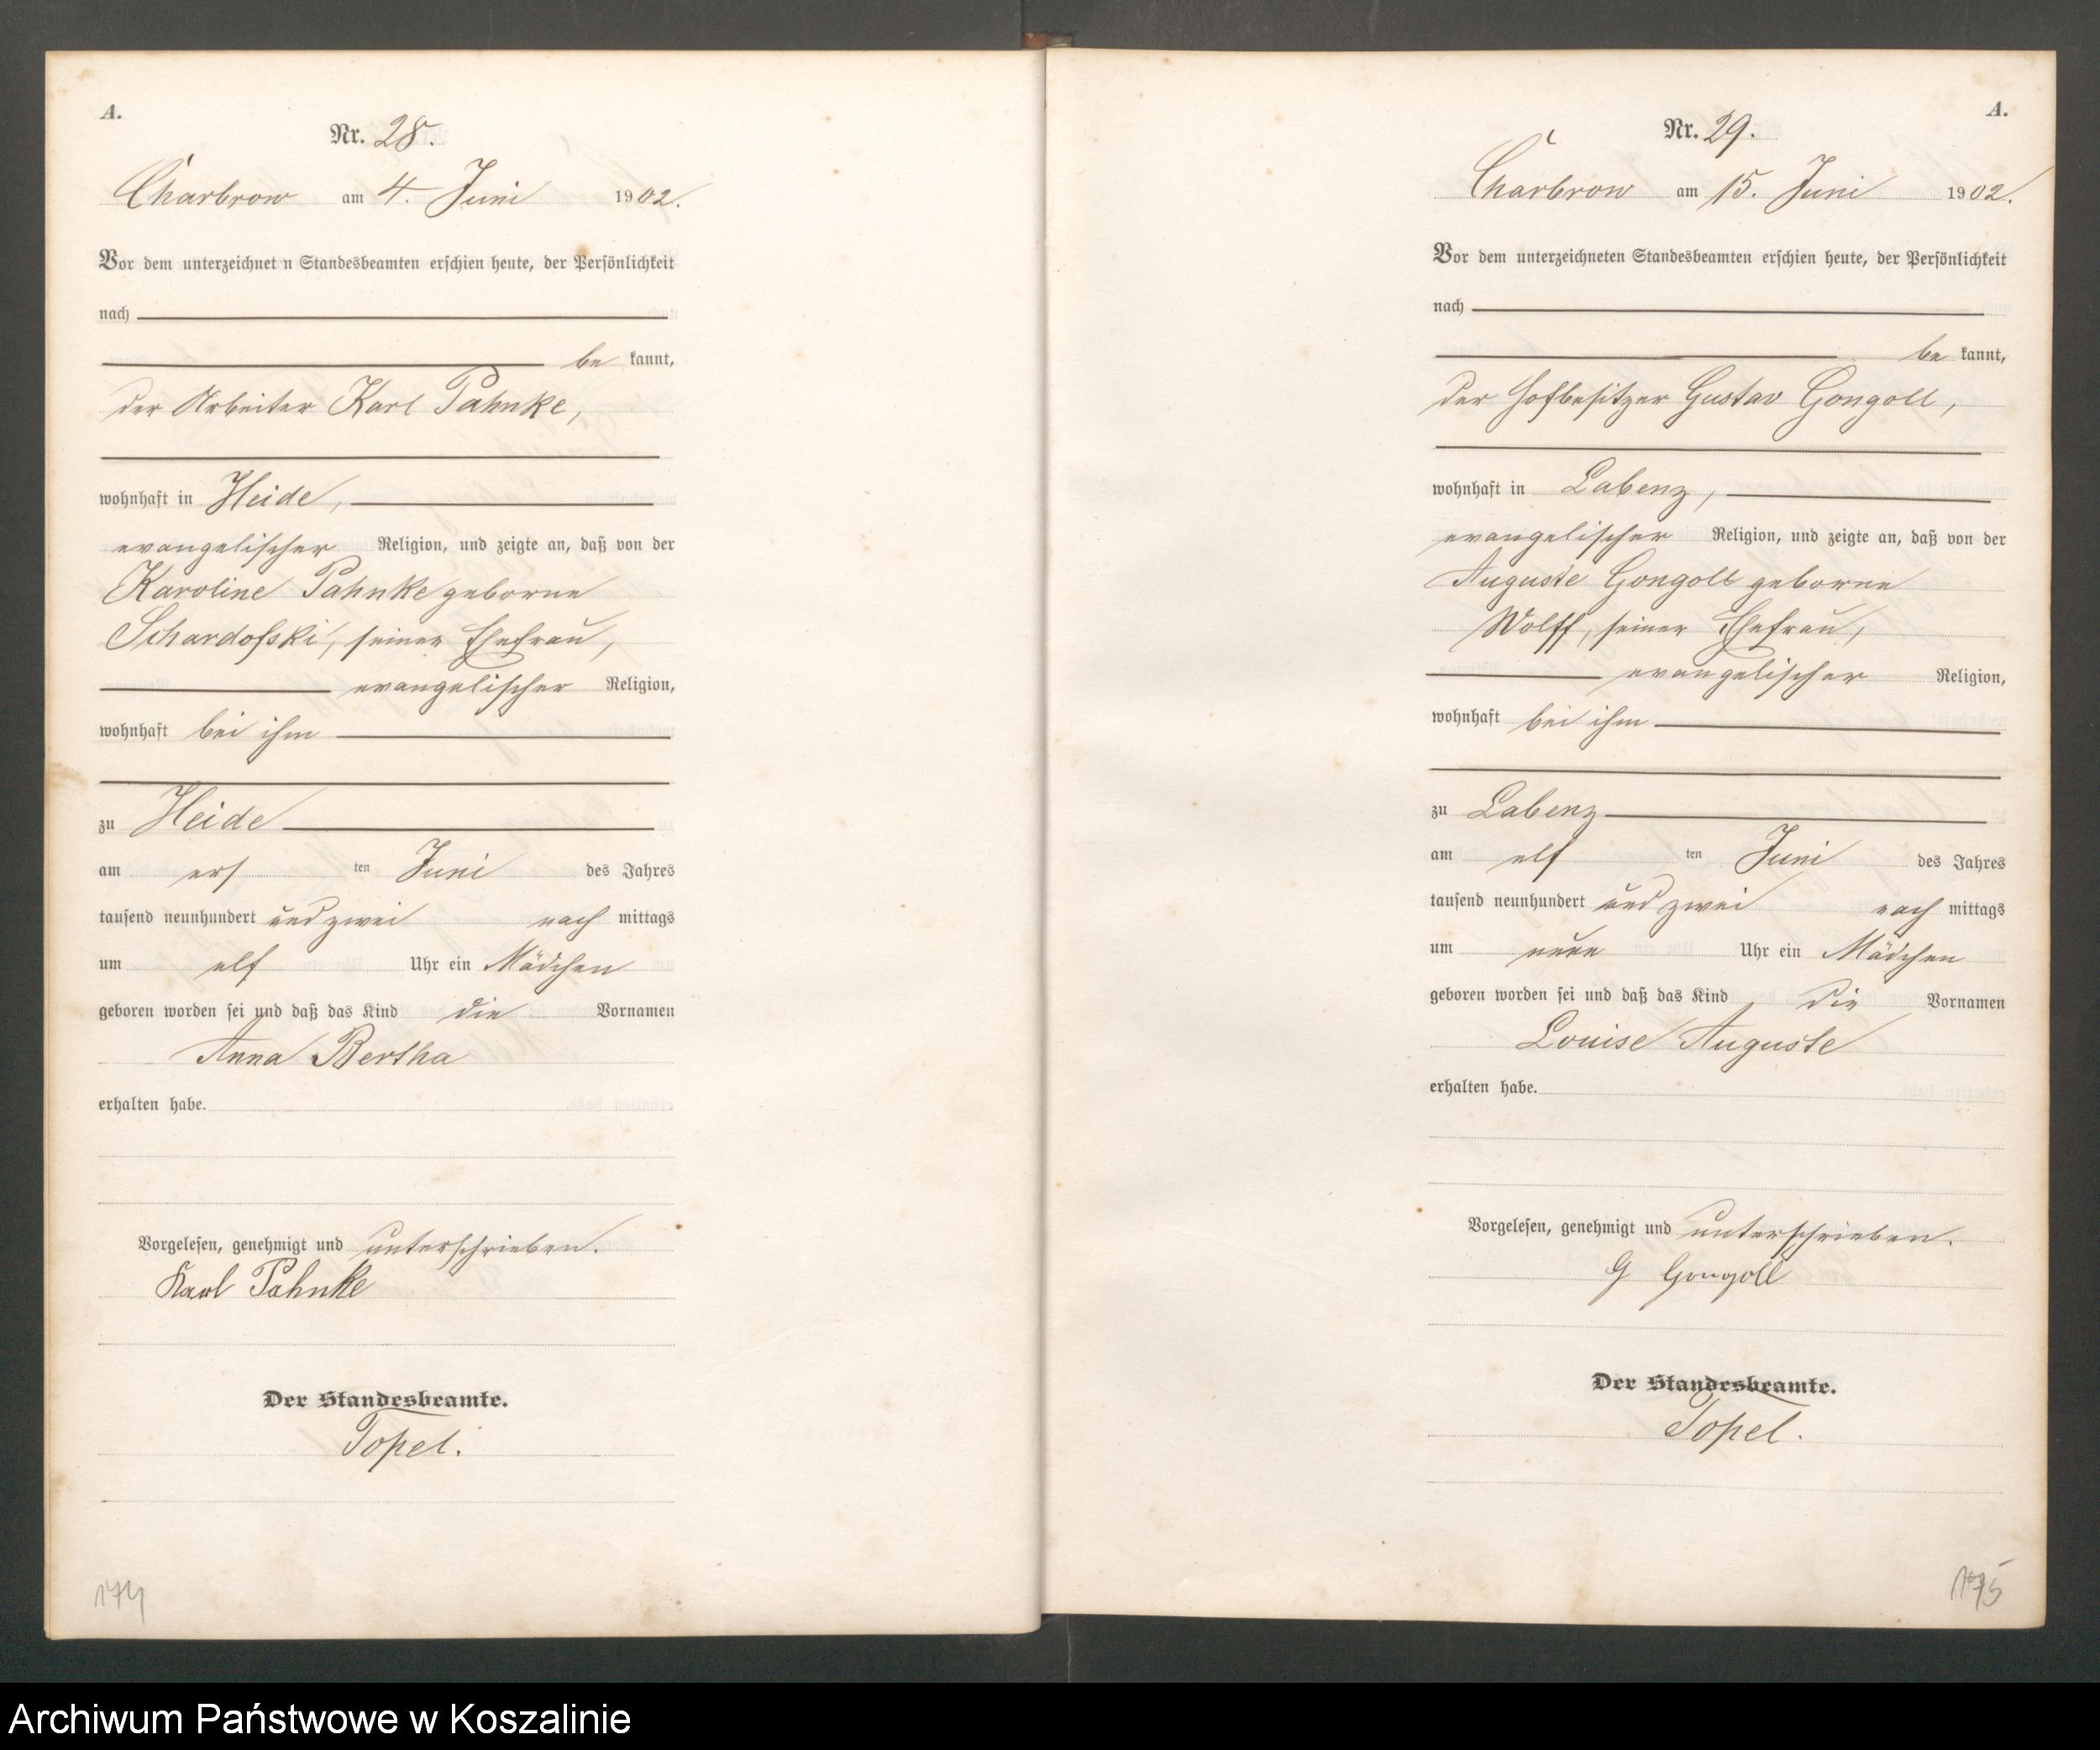 A.
Nr. 28.
Charbrow am 4. Juni 1902.
Vor dem unterzeichnet n Standesbeamten erschien heute, der Persönlichkeit
nach
be kannt,
der Arbeiter Karl Pahnke,
wohnhaft in Heide,
evangelischer Religion, und zeigte an, daß von der
Karoline Pahnke geborne
Schardofski, seiner Ehefrau,
evangelischer Religion,
wohnhaft bei ihm
zu Heide
am ers ten Juni des Jahres
tausend neunhundert und zwei nach mittags
um elf Uhr ein Mädchen
geboren worden sei und daß das Kind die Vornamen
Anna Bertha
erhalten habe.
Vorgelesen, genehmigt und unterschrieben.
Karl Pahnke
Der Standesbeamte.
Topel.
174
A.
Nr. 29.
Charbrow am 15. Juni 1902.
Vor dem unterzeichneten Standesbeamten erschien heute, der Persönlichkeit
nach
be kannt,
der Hofbesitzer Gustav Gongoll,
wohnhaft in Labenz,
evangelischer Religion, und zeigte an, daß von der
Auguste Gongoll geborne
Wolff, seiner Ehefrau,
evangelischer Religion,
wohnhaft bei ihm
zu Labenz
am elf ten Juni des Jahres
tausend neunhundert und zwei nach mittags
um neun Uhr ein Mädchen
geboren worden sei und daß das Kind die Vornamen
Louise Auguste
erhalten habe.
Vorgelesen, genehmigt und unterschrieben.
G Gongoll
Der Standesbeamte.
Topel.
175
Archiwum Państwowe w Koszalinie